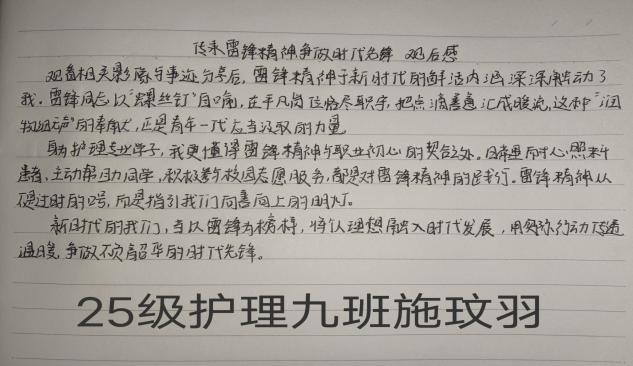 传承雷锋精神争做时代先锋 观后感
观看相关影像与事迹分享后,雷锋精神于新时代的鲜活内涵深深触动了
我。雷锋同志以“螺丝钉”自喻,在平凡岗位恪尽职守,把点滴善意汇成暖流,这种“润
物细无声”的奉献,正是青年一代应当汲取的力量
身为护理专业学子,我更懂得雷锋精神与职业初心的契合之处。日常里耐心照料
患者,主动帮助同学,积极参与校园志愿服务,都是对雷锋精神的践行。雷锋精神从
不是过时的口号,而是指引我们向善向上的明灯。
新时代的我们,当以雷锋为榜样,将个人理想融入时代发展,用实际行动传递
温暖,争做不负韶华的时代先锋。
25级护理九班施玟羽